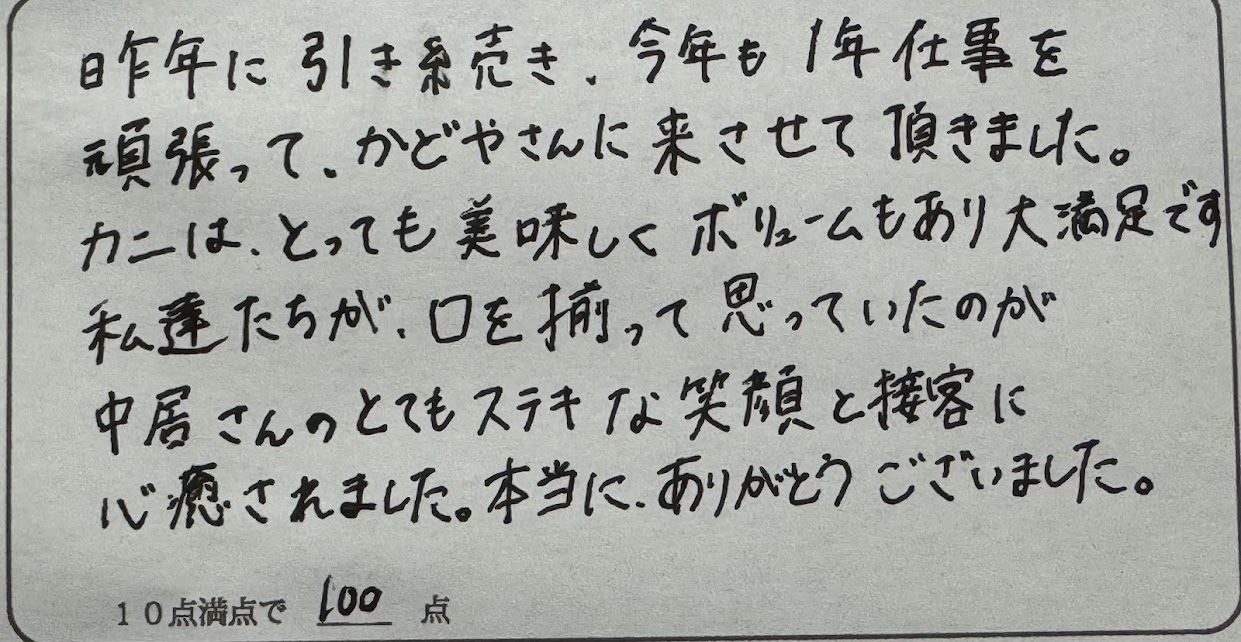 昨年に引き続き、今年も1年仕事を
頑張って、かどやさんに来させて頂きました。
カニは、とっても美味しくボリュームもあり大満足です
私達たちが、口を揃って思っていたのが
中居さんのとてもステキな笑顔と接客に
心癒されました。本当に、ありがとうございました。
10点満点で 100 点